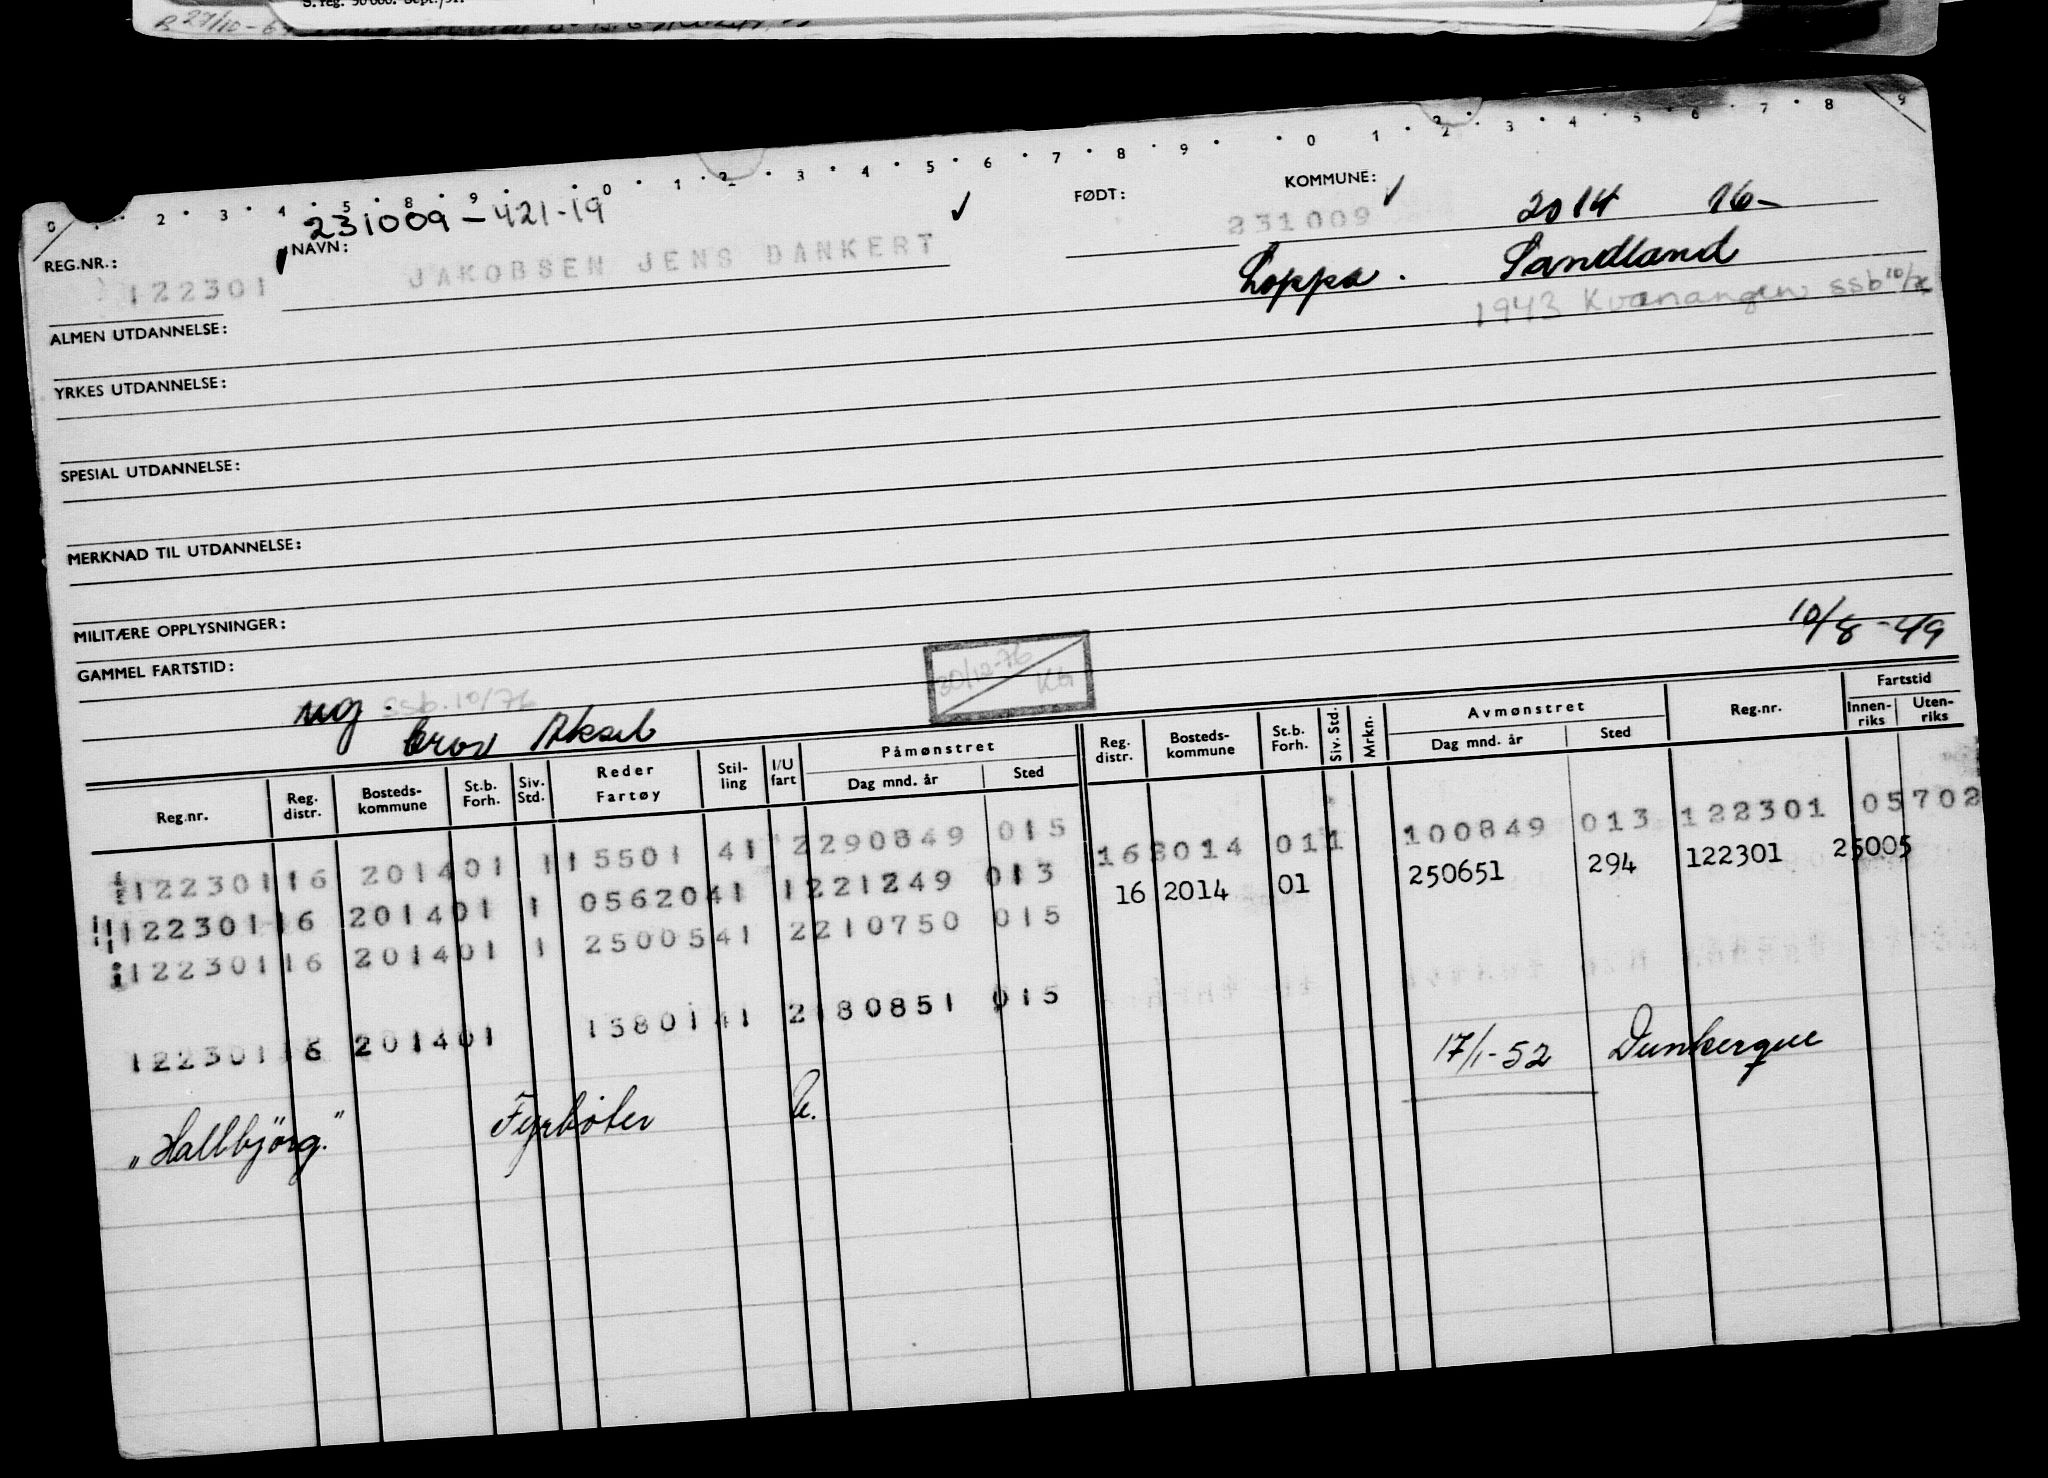 S. reg. 50 000. Sept./51.
0 2 3 4 5 8 9 0 1 2 3 4 5 6 7 8 9 0 1 2 3 4 5 6 7 8 9
231009-421-19
REG.NR.: NAVN: FØDT: KOMMUNE:
122301 JAKOBSEN JENS DANKERT 231009 2014 16-
Loppa. Sandland
1943 Kvænangen ssb 10/76
ALMEN UTDANNELSE:
YRKES UTDANNELSE:
SPESIAL UTDANNELSE:
MERKNAD TIL UTDANNELSE:
MILITÆRE OPPLYSNINGER:
GAMMEL FARTSTID:
10/8-49
30/12-76
ug. ssb. 10/76
bror Aksel
Reg.nr. Reg. distr. Bosteds-kommune St.b. Forh. Siv. Std. Reder Fartøy Stil-ling I/U fart Påmønstret Dag mnd. år Sted Reg. distr. Bosteds-kommune St.b. Forh. Siv. Std. Mrkn. Avmønstret Dag mnd. år Sted Reg.nr. Fartstid Innen-riks Uten-riks
122301 16 2014 01 1 15501 41 2 290849 015 16 2014 01 1 100849 013 122301 05702
122301 16 2014 01 1 05620 41 1 221249 013 16 2014 01 250651 294 122301 25005
122301 16 2014 01 1 25005 41 2 210750 015
122301 16 2014 01 13801 41 2 180851 015 17/1-52 Dunkerque
"Hallbjörg." Fyrbøter U.